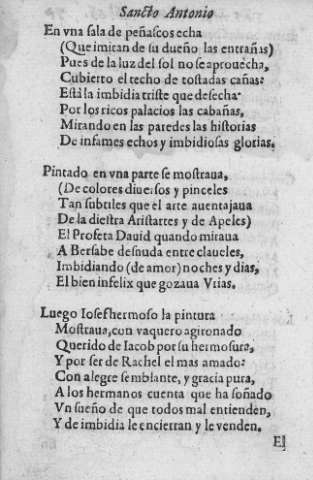 Sancto Antonio
En vna sala de peñascos echa
(Que imitan de su dueño las entrañas)
Pues de la luz del sol no se aprouecha,
Cubierto el techo de tostadas cañas:
Està la imbidia triste que desecha
Por los ricos palacios las cabañas,
Mirando en las paredes las historias
De infames echos y imbidiosas glorias.
Pintado en vna parte se mostraua,
(De colores diuersos y pinceles
Tan subtiles que el arte auentajaua
De la diestra Aristartes y de Apeles)
El Profeta Dauid quando miraua
A Bersabe desnuda entre claueles,
Imbidiando (de amor) noches y dias,
El bien infelix que gozaua Vrias.
Luego Iosef hermoso la pintura
Mostraua, con vaquero agironado
Querido de Iacob por su hermosura,
Y por ser de Rachel el mas amado:
Con alegre semblante, y gracia pura,
A los hermanos cuenta que ha soñado
Vn sueño de que todos mal entienden,
Y de imbidia le encierran y le venden.
El